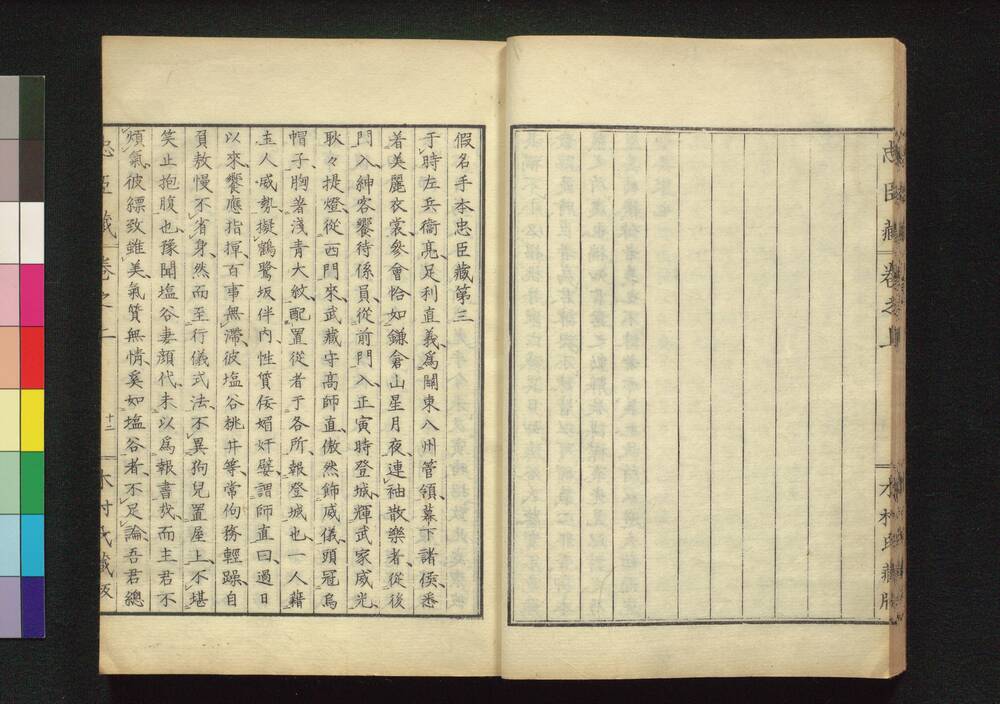 忠臣藏 卷之上
木村氏藏版
假名手本忠臣藏第三
于時左兵衞髙足利直義爲關東八州管領幕下諸侯悉
着美麗衣裳參會恰如鎌倉山星月夜連袖散樂者從後
門入紳客饗待係員從前門入正寅時登城輝武家威光
耿々提燈從西門來武藏守髙師直傲然飾威儀頭冠烏
帽子胸著淺青大紋配置從者于各所報登城也一人藉
主人威勢擬鶴鷺坂伴内性質佞媚奸嬖謂師直曰過日
以來饗應指揮百事無滯彼塩谷桃井等常佝務輕躁自
負敖慢不省身然而至行儀式法不異狗兒置屋上不堪
笑止抱腹也豫聞塩谷妻顔代未以爲報書哉而主君不
煩氣彼縹致雖美氣質無情奚如塩谷者不足論吾君總
忠臣藏 卷之二
十二
木村氏藏版